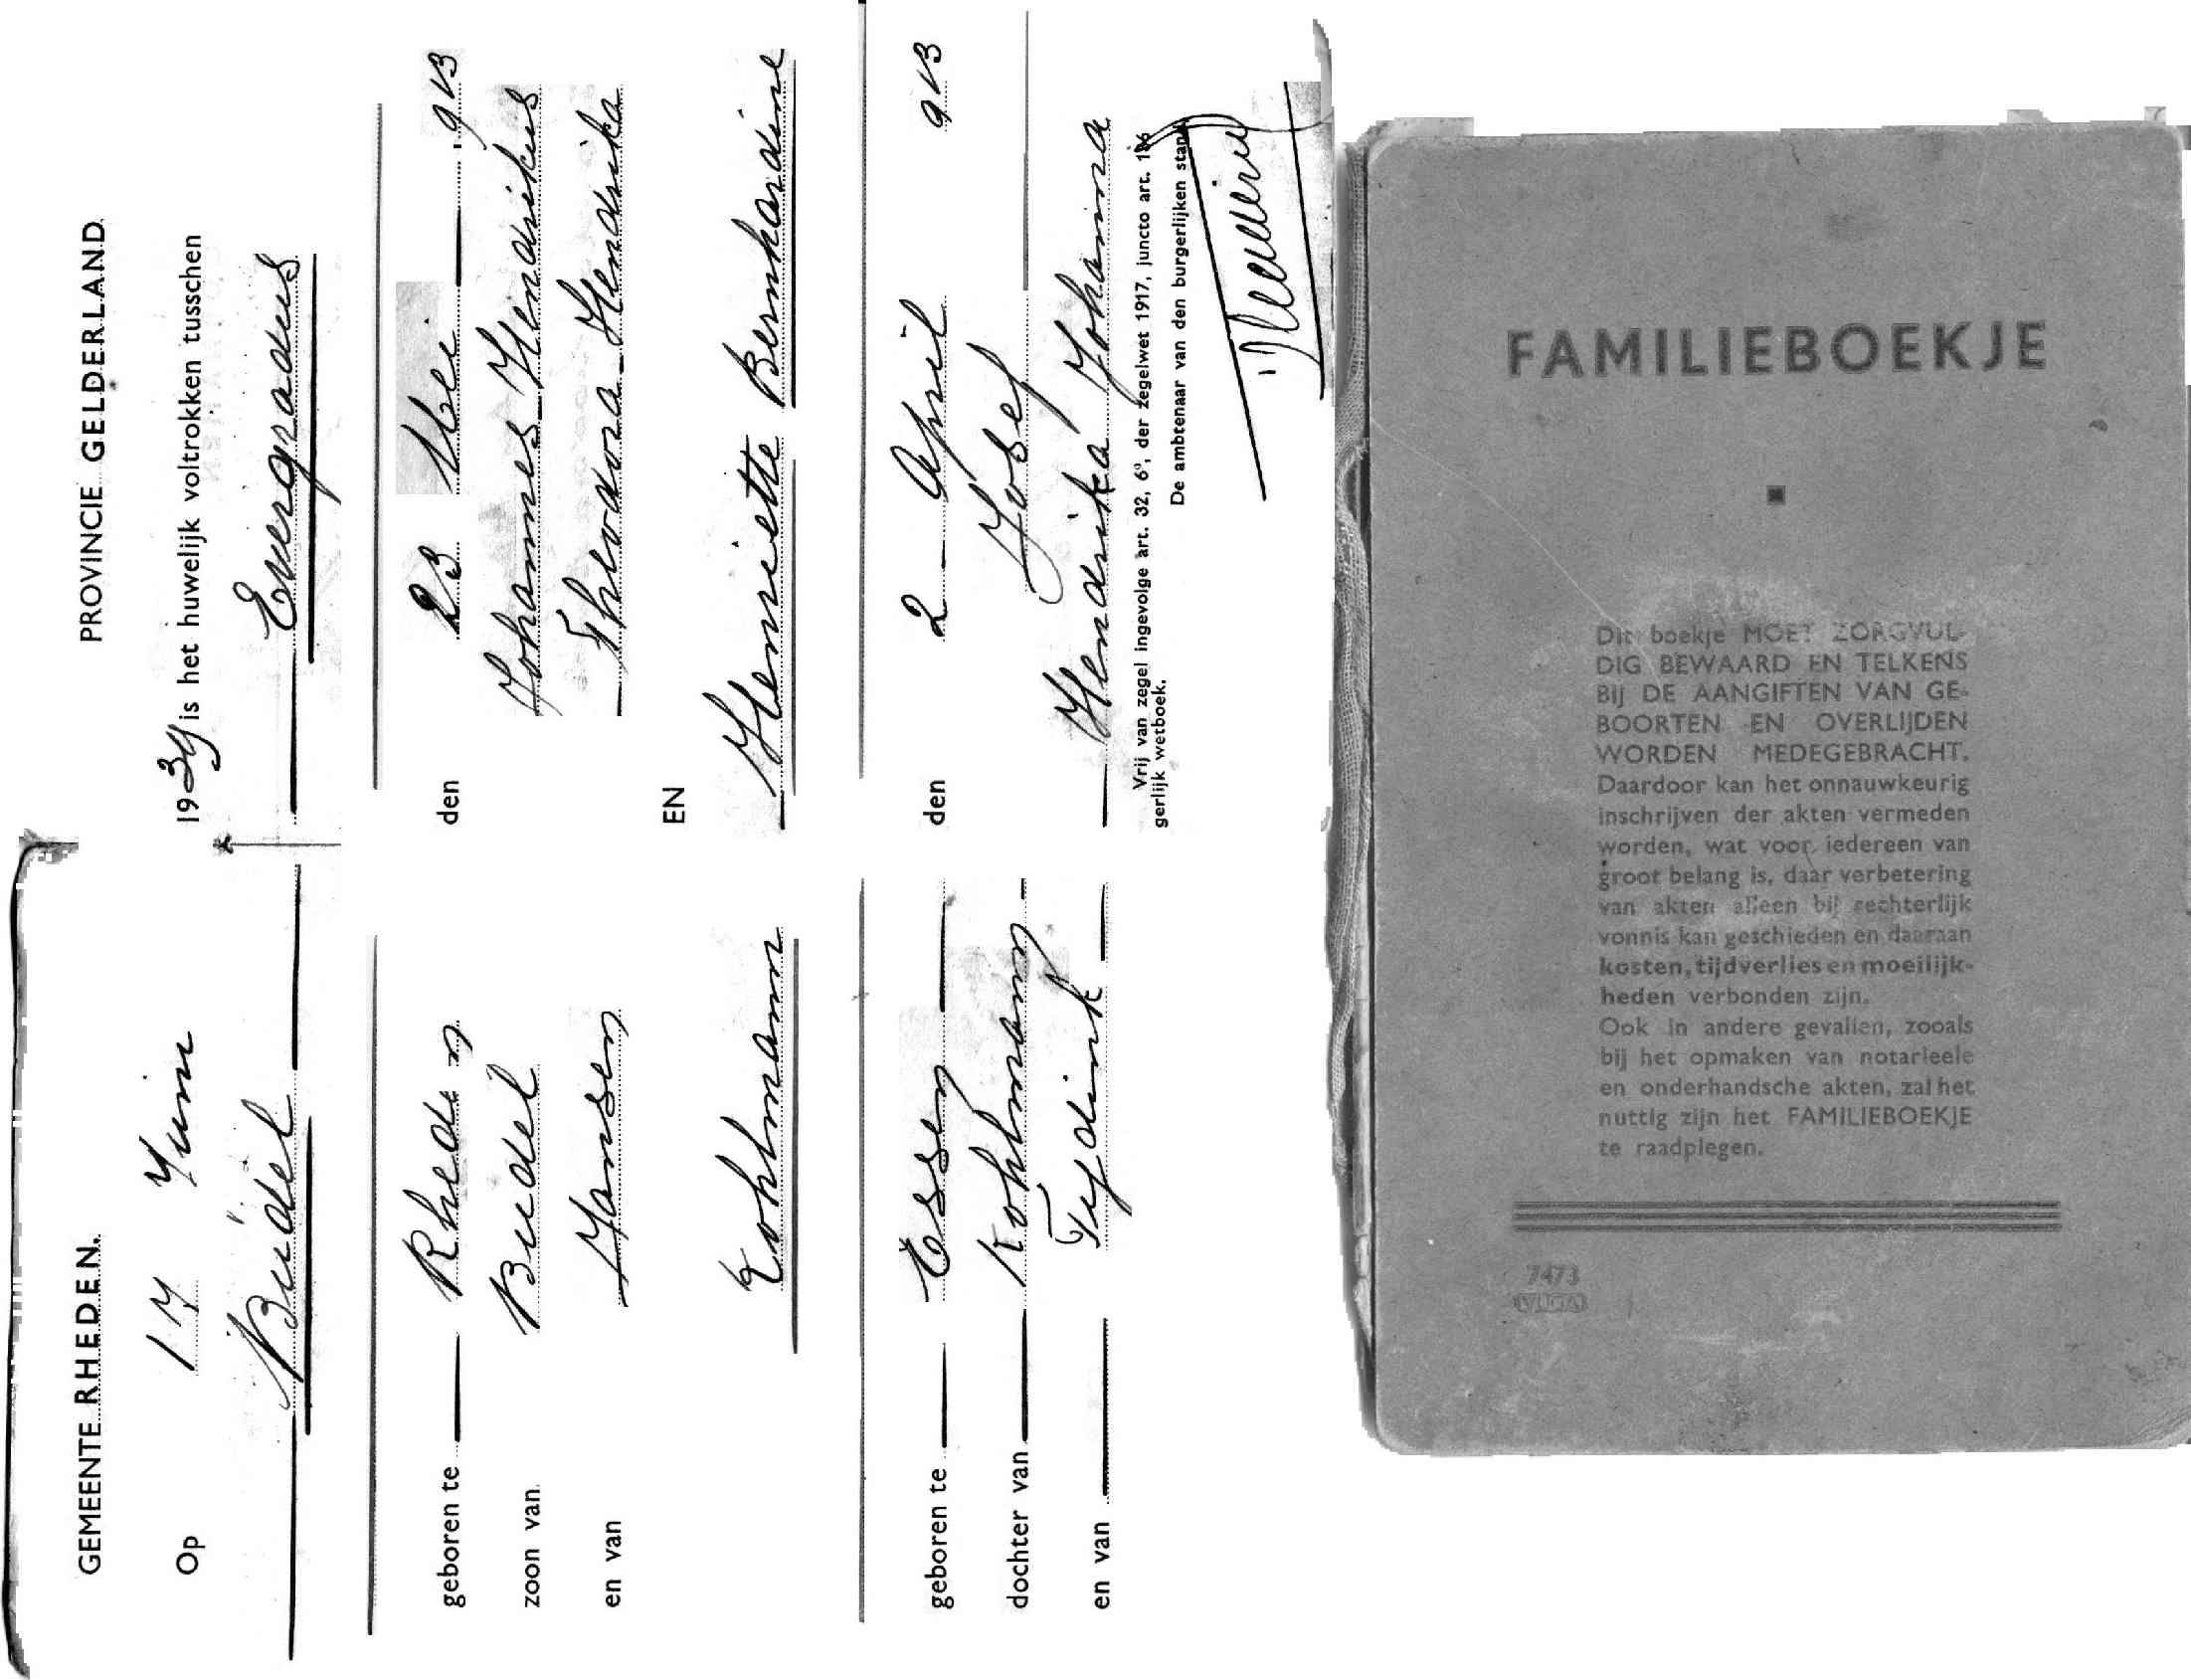 GEMEENTE RHEDEN. PROVINCIE GELDERLAND
Op 17 Juni 1939 is het huwelijk voltrokken tusschen
Budel Evergradus
geboren te Rheden den 23 Mei 913
zoon van Budel Johannes Hendrikus
en van Jansen Theodora Hendrika
EN
Kohlmann Henriette Bernhardine
geboren te Essen den 2 April 913
dochter van Kohlmann Josef
en van Hendrika Johanna
Vrij van zegel ingevolge art. 32, 6°, der zegelwet 1917, juncto art. 136
gerlijk wetboek.
De ambtenaar van den burgerlijken stand
FAMILIEBOEKJE
Dit boekje MOET ZORGVUL-
DIG BEWAARD EN TELKENS
BIJ DE AANGIFTEN VAN GE-
BOORTEN EN OVERLIJDEN
WORDEN MEDEGEBRACHT.
Daardoor kan het onnauwkeurig
inschrijven der akten vermeden
worden, wat voor iedereen van
groot belang is, daar verbetering
van akten alleen bij rechterlijk
vonnis kan geschieden en daaraan
kosten, tijdverlies en moeilijk-
heden verbonden zijn.
Ook in andere gevallen, zooals
bij het opmaken van notarieele
en onderhandsche akten, zal het
nuttig zijn het FAMILIEBOEKJE
te raadplegen.
7473
VUGA